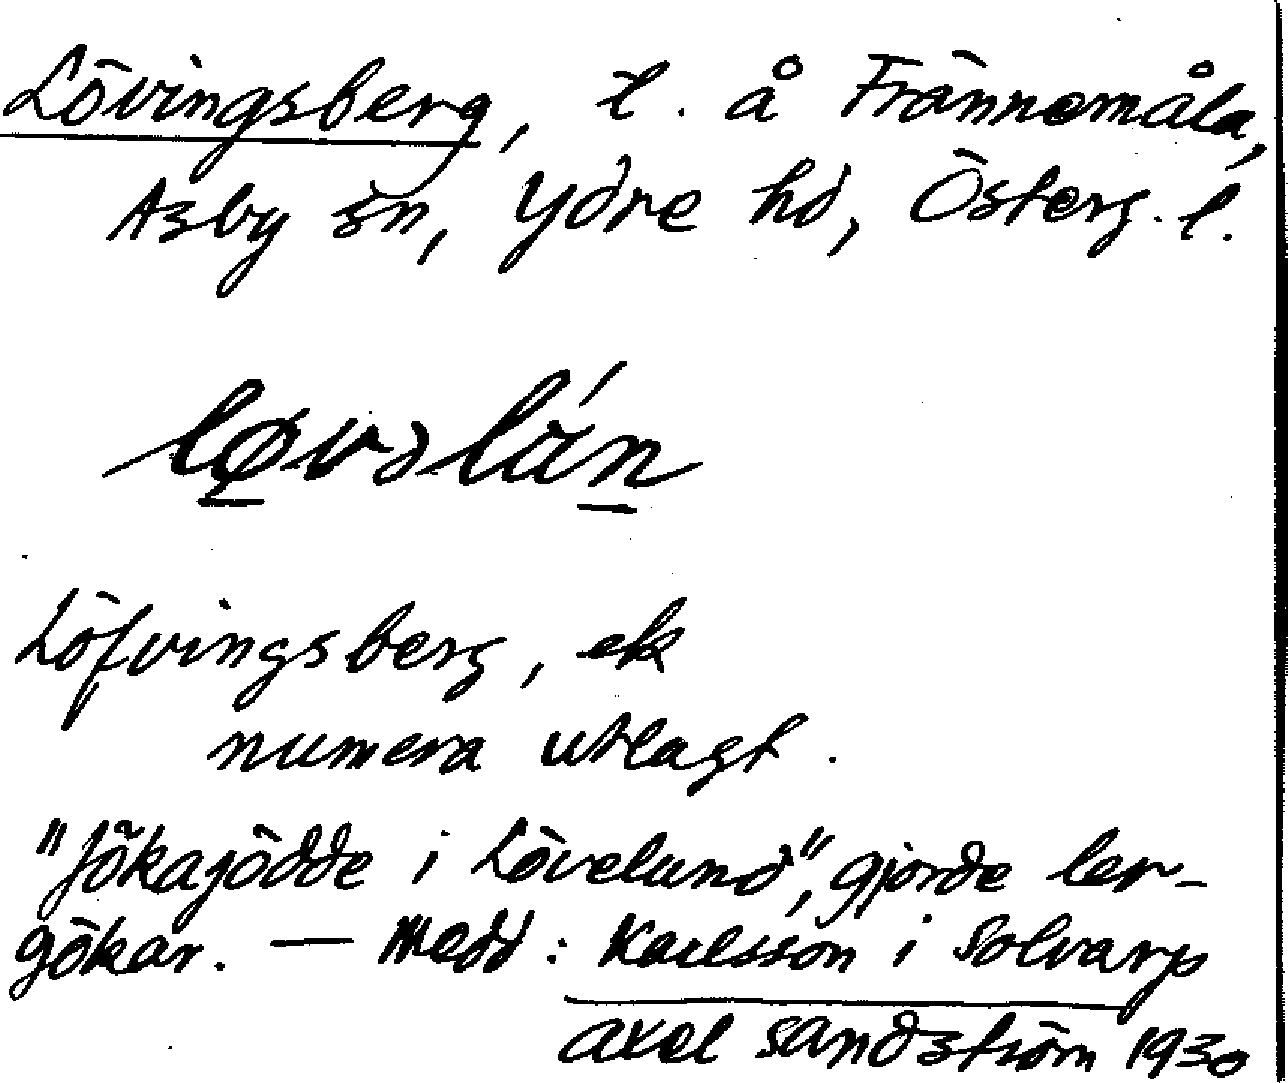 Lövingsberg, t. å Frännemåla,
Asby sn, Ydre hd, Österg. l.
Löfvingsberg, ek
numera utlagt.
"Jökajödde i Lövelund", gjorde ler-
gökar. — Medd: Karlsson i Solvarp
Axel Sandström 1930